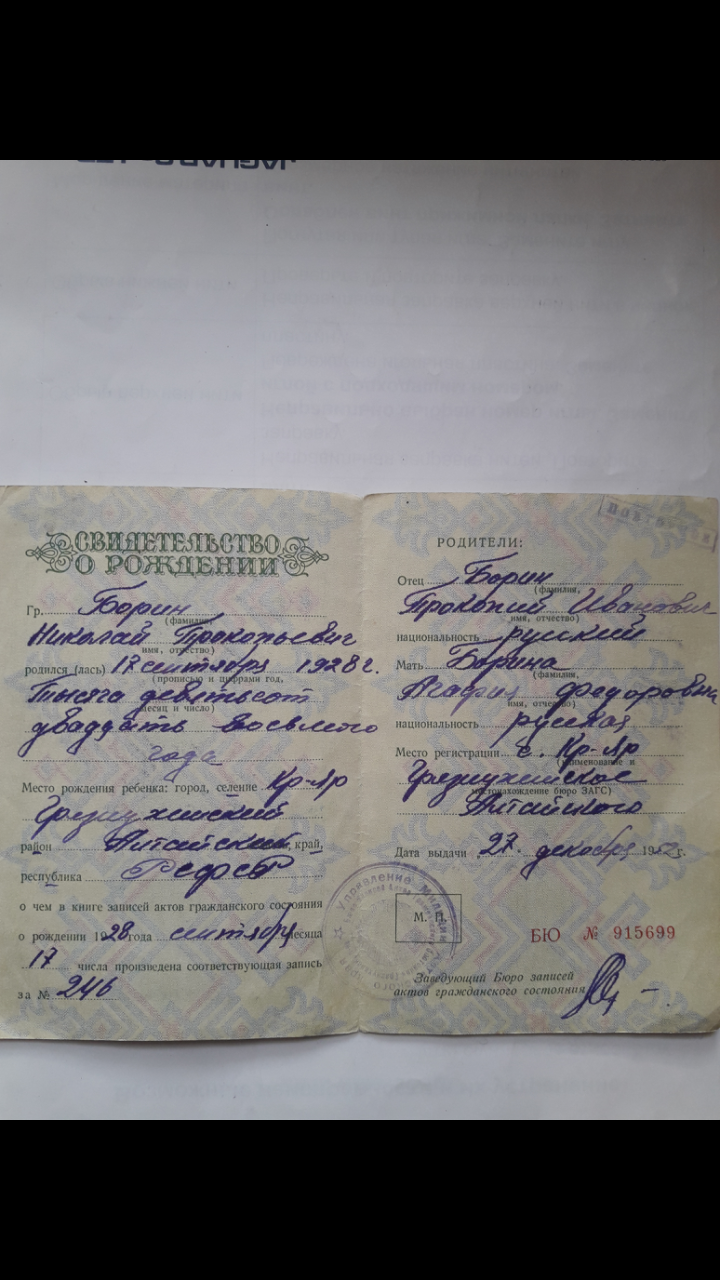 СВИДЕТЕЛЬСТВО
О РОЖДЕНИИ
Гр. Борин
(фамилия,
Николай Прокопьевич
имя, отчество)
родился (лась) 17 сентября 1928 г.
(прописью и цифрами год,
Тысяча девятьсот
месяц и число)
двадцать восьмого
года
Место рождения ребенка: город, селение Кр-Яр
Грязнухинский
район Алтайский край,
республика РСФСР
о чем в книге записей актов гражданского состояния
о рождении 1928 года сентября месяца
17 числа произведена соответствующая запись
за № 246
РОДИТЕЛИ:
Отец Борин
(фамилия,
Прокопий Иванович
имя, отчество)
национальность русский
Мать Борина
(фамилия,
Агафия Федоровна
имя, отчество)
национальность русская
Место регистрации с. Кр-Яр
(наименование и
Грязнухинское
местонахождение бюро ЗАГС)
Алтайского
Дата выдачи 27 декабря 19
Управление Милиции
М. П.
БЮ № 915699
Заведующий Бюро записей
актов гражданского состояния